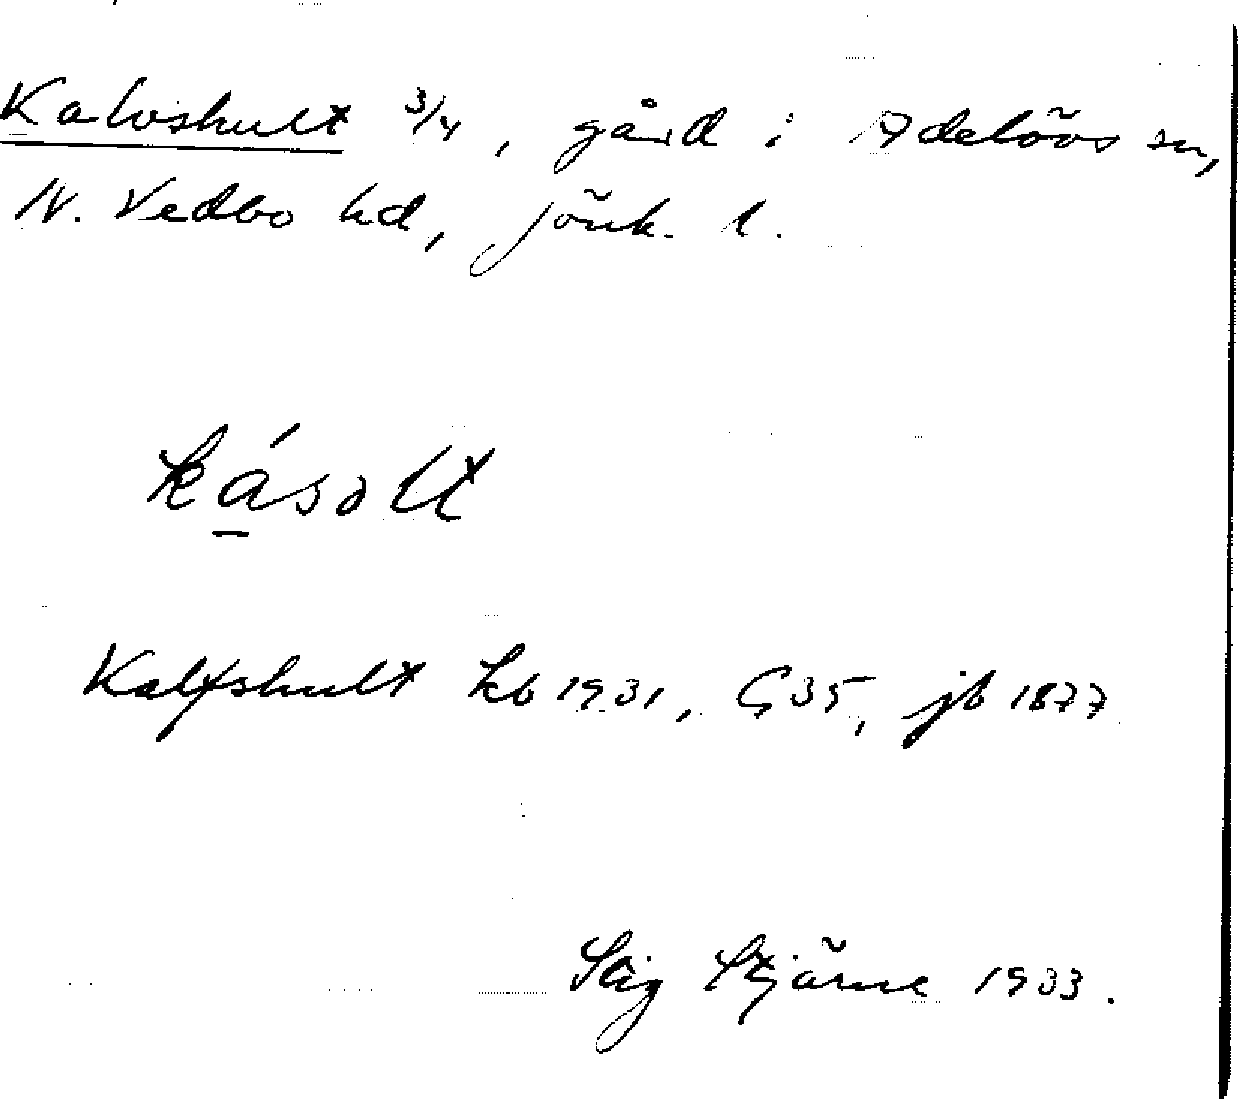 Kalvshult 3/4, gård i Adelövs sn,
N. Vedbo hd, Jönk. l.
kásolt
Kalfshult kb 1931, G 35, jb 1877
Stig Stjärne 1933.